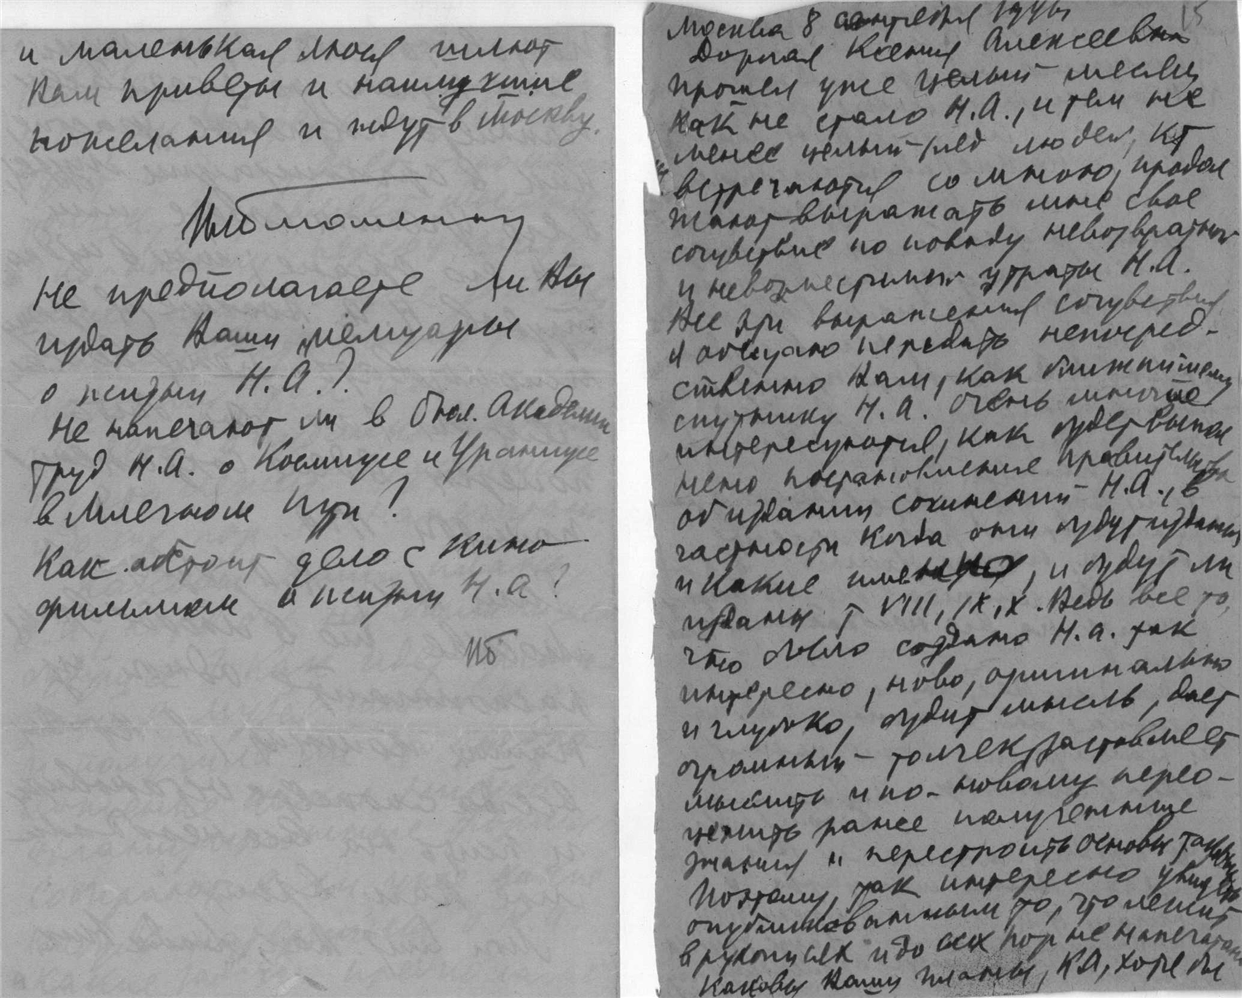 и маленькая Люся шлют
Вам приветы и наилучшие
пожелания и ждут в Москву.
Не предполагаете ли Вы
издать Ваши мемуары
о жизни Н.А.?
Не напечатают ли в Академии
труд Н.А. о Космизме и Уранизме
в Млечном пути?
Как обстоит дело с кино
фильмом о жизни Н.А?
ИБ
Москва 8 сентября
Дорогая Ксения Алексеевна
прошел уже целый месяц
как не стало Н.А., и тем не
менее целый ряд людей, кт
встречаются со мною, продол
жают выражать мне свое
сочувствие по поводу невозвратной
и невозместимой утраты Н.А.
Все эти выражения сочувствия
я обещаю передать непосред-
ственно Вам, как ближайшему
спутнику Н.А. Очень многие
интересуются, как будет выпол
нено постановление правительства
об издании сочинений Н.А., в
частности когда они будут изданы
и какие именно, и будут ли
изданы т VIII, IX, X. Ведь все то,
что было создано Н.А. так
интересно, ново, оригинально
и глубоко, будит мысль, дает
огромный толчек, заставляет
мыслить и по-новому перео-
ценить ранее полученные
знания и перестроить основы таковых
Поэтому, так интересно увидеть
опубликованным то, что лежит
в рукописях и до сих пор не напечатано
Каковы Ваши планы, К.А., хотя бы